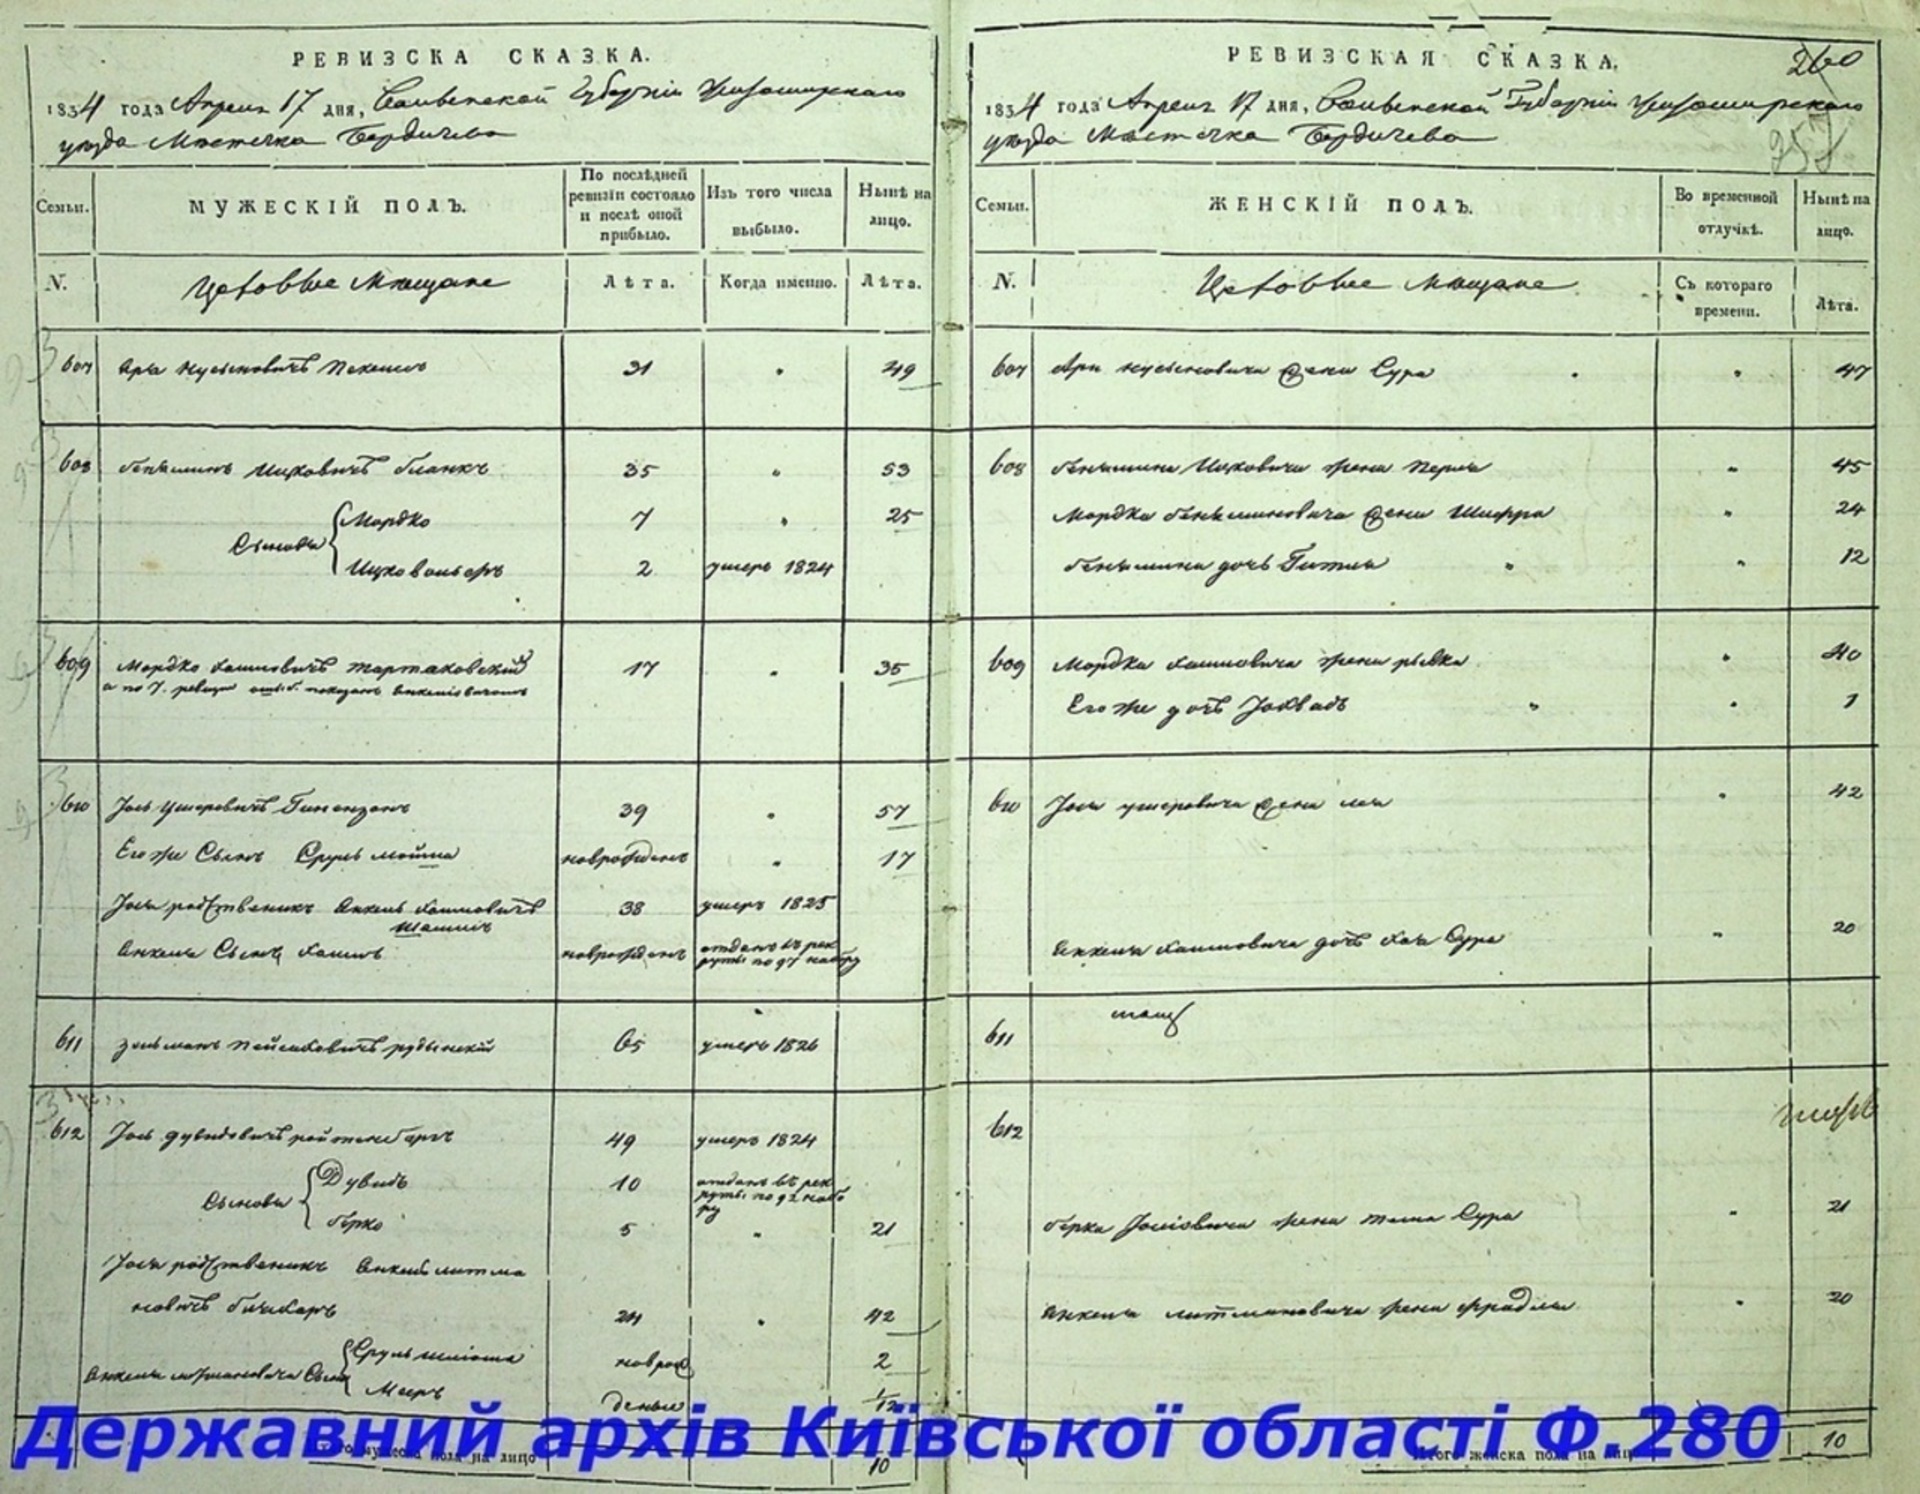 РЕВИЗСКА СКАЗКА.
1834 года Апреля 17 дня, Губернии Житомирского
уезда Местечка Бердичева
Семьи.
МУЖЕСКІЙ ПОЛЪ.
По послѣдней
ревизіи состояло
и послѣ оной
прибыло.
Изъ того числа
выбыло.
Нынѣ на
лицо.
N.
Цеховые Мещане
Лѣта.
Когда именно.
Лѣта.
607 31 49
608 Беньяминъ Ицковичъ Бланкъ 35 53
Сыновья
Мордко 7 25
2 умеръ 1824
609 Мордко Хаимовичъ Тартаковский 17 35
610 Іось Ушеровичъ 39 57
Его же Сынъ Сруль Мошка новорожденъ 17
Іося родственникъ Анкель Хаимовичъ 38 умеръ 1825
Анкеля Сынъ Хаимъ новорожденъ отданъ въ рек
руты по 97 набору
611 65 умеръ 1826
612 Іось Дувидовичъ 49 умеръ 1824
Сыновья
Дувидъ 10 отданъ въ рек
руты по 92 набо
ру
Берко 5 21
Іося родственникъ
24 42
Сруль новорож 2
Мееръ денъ 1/12
Итого мужеска пола на лицо 10
РЕВИЗСКАЯ СКАЗКА.
260
257
1834 года Апреля 17 дня, Губернии Житомирского
уезда Местечка Бердичева
Семьи.
ЖЕНСКІЙ ПОЛЪ.
Во временной
отлучкѣ.
Нынѣ на
лицо.
N.
Цеховые Мещане
Съ котораго
времени.
Лѣта.
607 жена Сура 47
608 Беньямина Ицковича жена Перля 45
Мордка Беньяминовича жена Шифра 24
Беньямина дочь Гитля 12
609 Мордка Хаимовича жена Рывка 40
Его же дочь 1
610 Іося Ушеровича жена Лея 42
Анкеля Хаимовича дочь Хая Сура 20
611
612
Берка Іосіовича жена Сура 21
Анкеля Литмановича жена Фрадля 20
Итого женска пола на лицо 10
Державний архів Київської області Ф.280